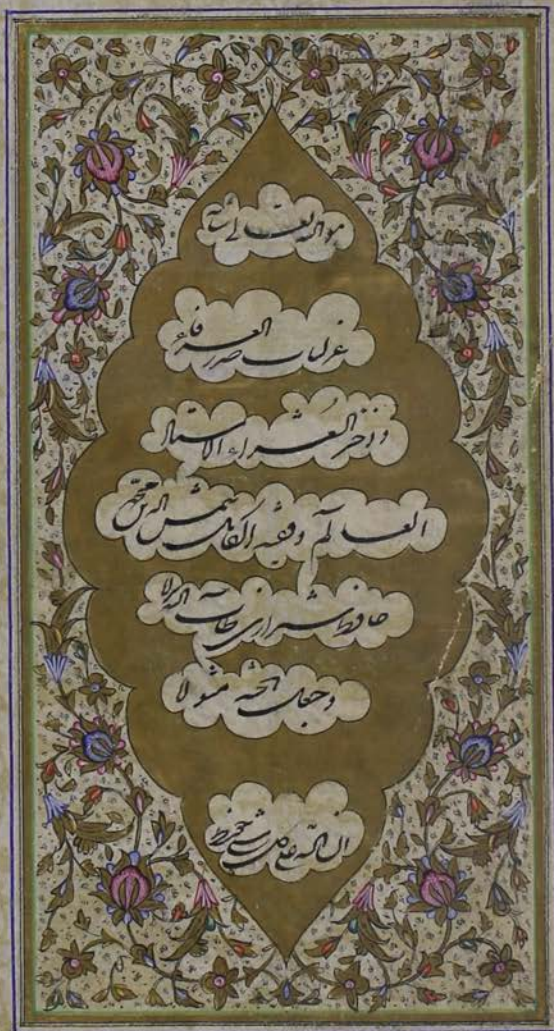 هو الله تعالی شأنه
غزلیات صدر العرفاء
و فخر الشعراء الاستاد
العالم و فقیه الکامل شمس الدین محمد
حافظ شیرازی طاب الله ثراه
و جعل الجنة مثواه
ان الله علی کل شیئ حفیظ